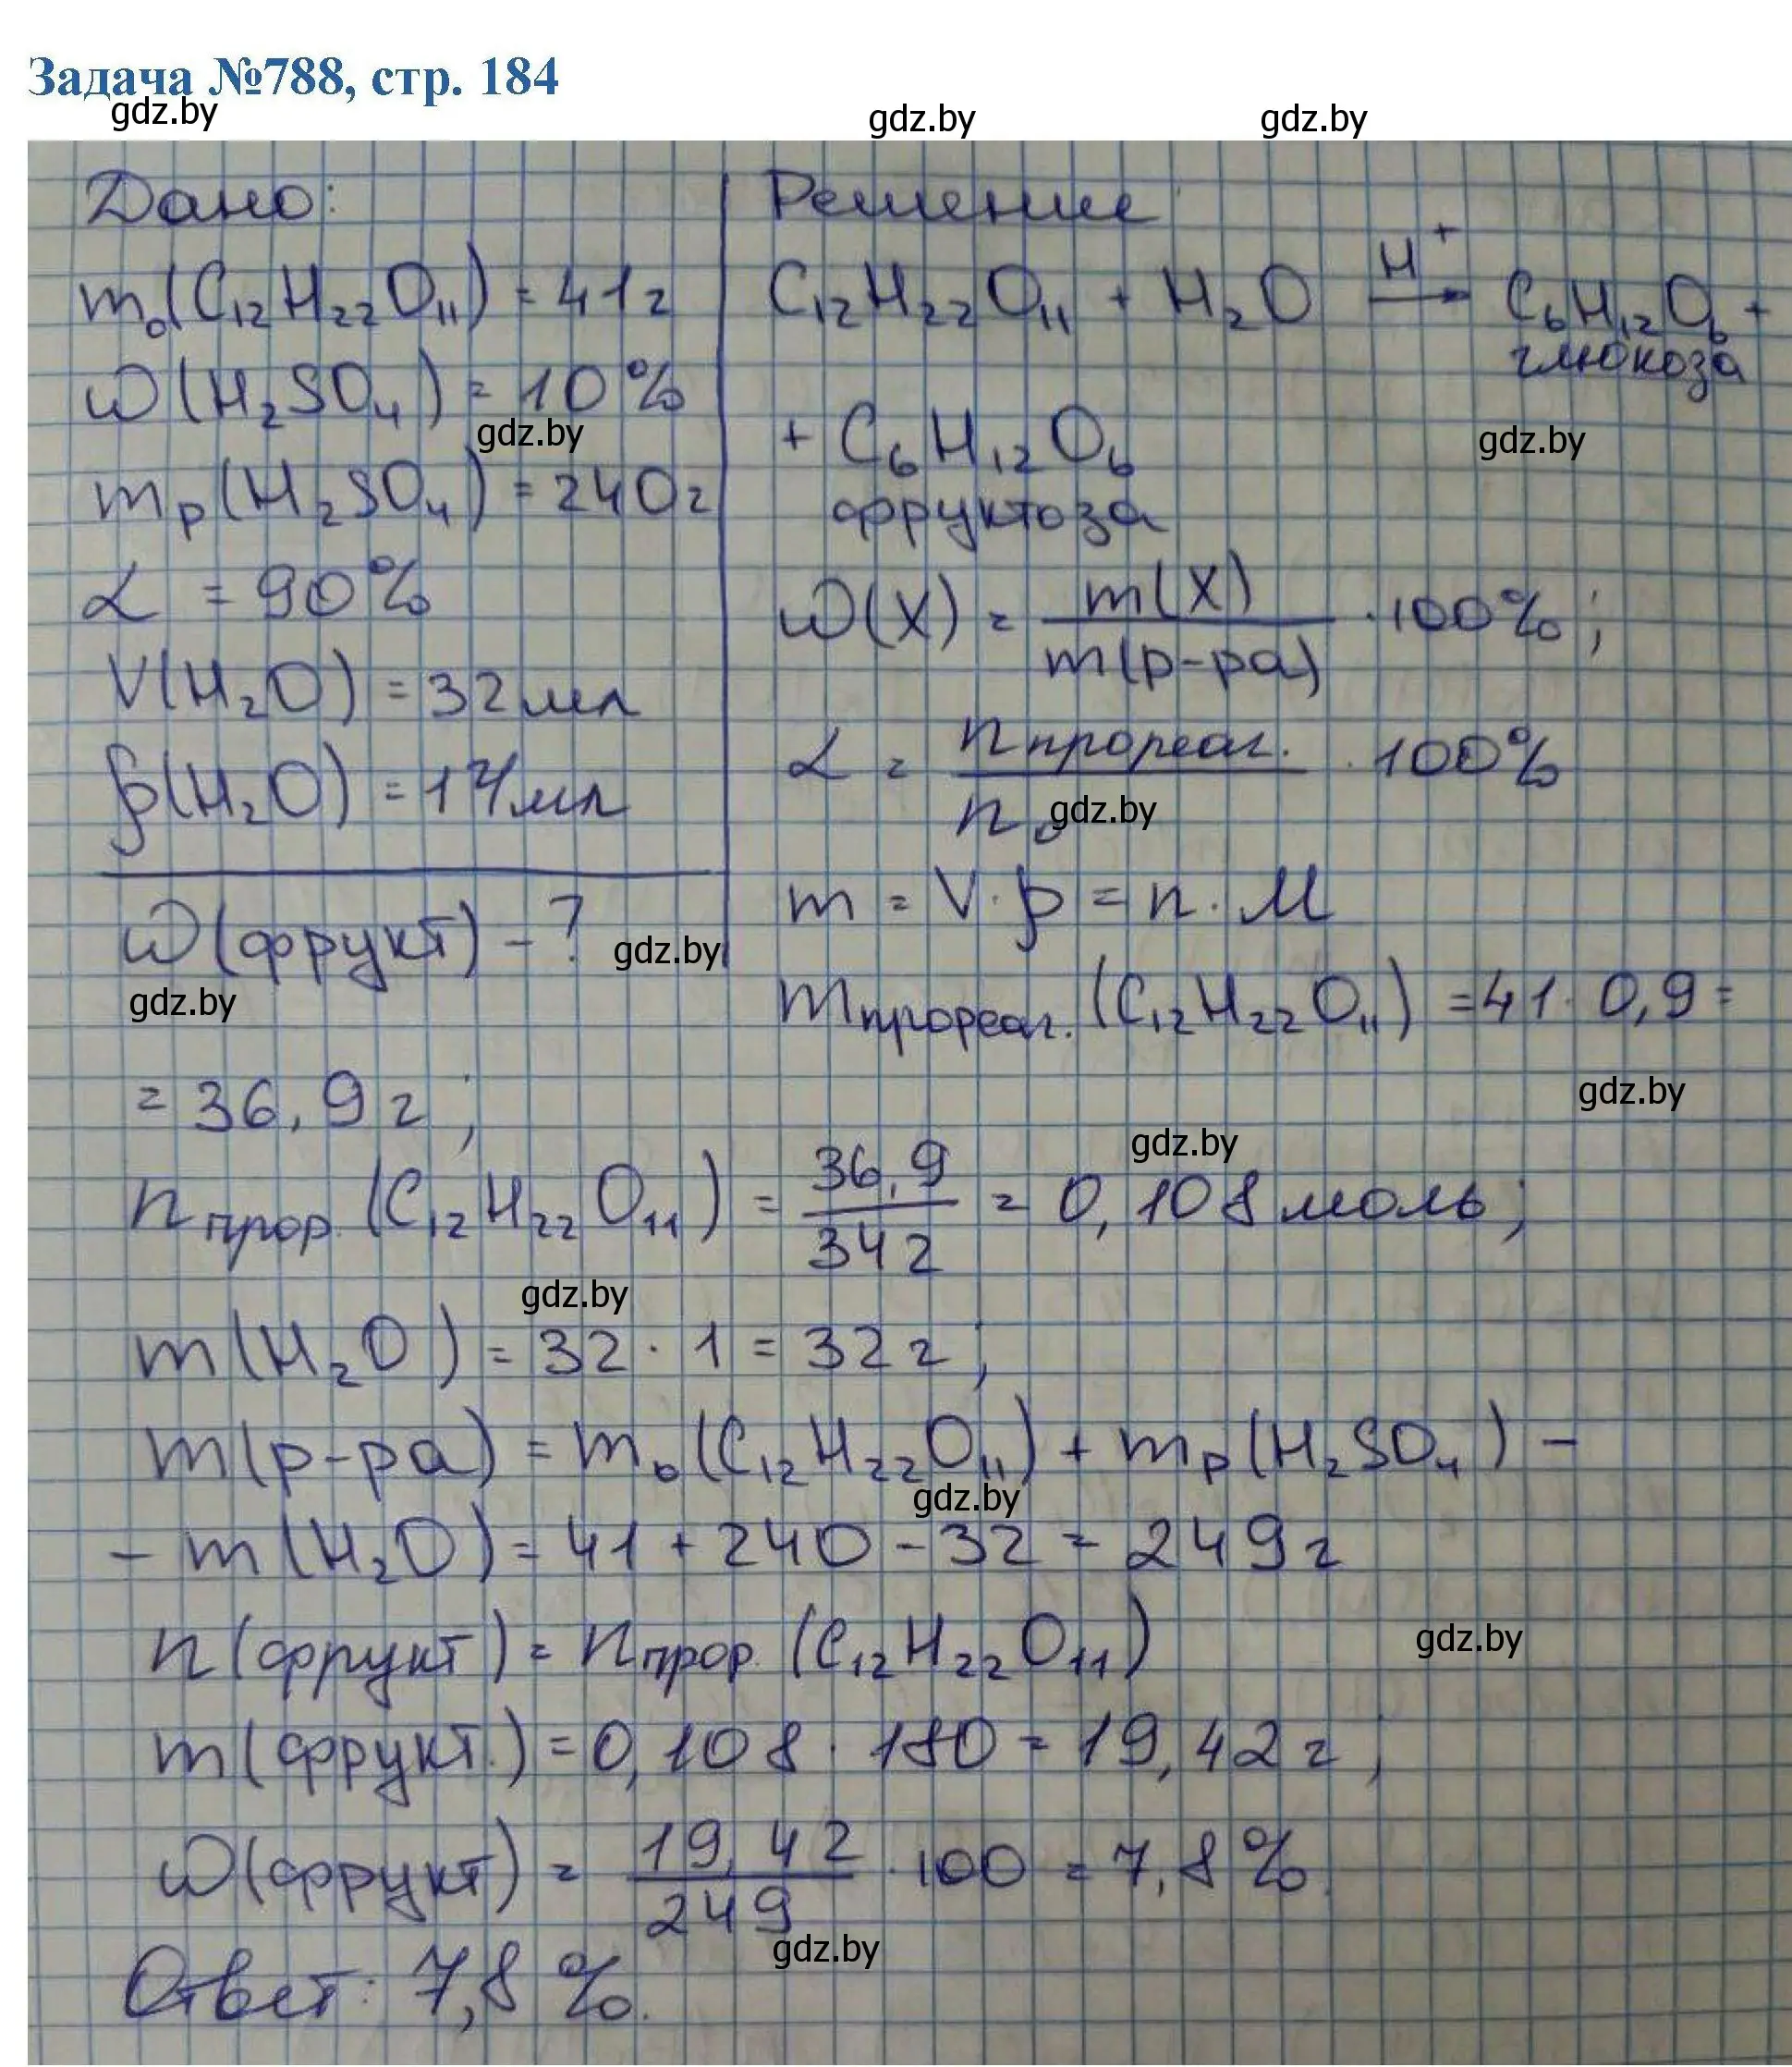 Задача №788, стр. 184
gdz.by gdz.by gdz.by
Дано:
m₀(C₁₂H₂₂O₁₁) = 41г
ω(H₂SO₄) = 10%
gdz.by
mр(H₂SO₄) = 240г
α = 90%
V(H₂O) = 32мл
ρ(H₂O) = 1г/мл
ω(фрукт) - ?
gdz.by
gdz.by
Решение
C₁₂H₂₂O₁₁ + H₂O —H⁺→ C₆H₁₂O₆ +
глюкоза
+ C₆H₁₂O₆
gdz.by
фруктоза
ω(X) = m(X)/m(р-ра) · 100%;
α = nпрореаг./n₀ · 100%
gdz.by
m = V · ρ = n · M
mпрореаг.(C₁₂H₂₂O₁₁) = 41 · 0,9 =
gdz.by
= 36,9г;
gdz.by
nпрор.(C₁₂H₂₂O₁₁) = 36,9/342 = 0,108 моль;
gdz.by
m(H₂O) = 32 · 1 = 32г;
m(р-ра) = m₀(C₁₂H₂₂O₁₁) + mр(H₂SO₄) -
gdz.by
- m(H₂O) = 41 + 240 - 32 = 249г
n(фрукт) = nпрор.(C₁₂H₂₂O₁₁)
gdz.by
m(фрукт.) = 0,108 · 180 = 19,42г;
ω(фрукт) = 19,42/249 · 100 = 7,8%
gdz.by
Ответ: 7,8%.